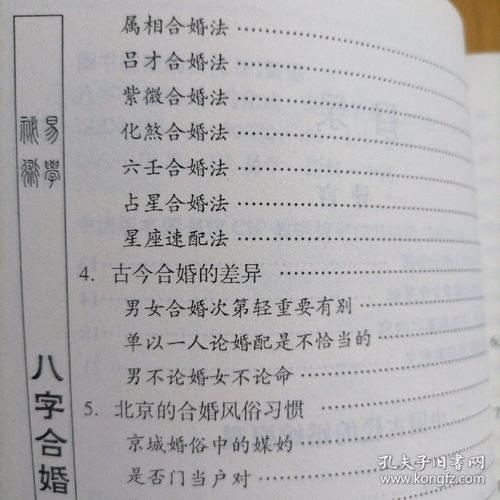 属相合婚法
吕才合婚法
紫微合婚法
化煞合婚法
六壬合婚法
占星合婚法
星座速配法
4. 古今合婚的差异
男女合婚次第轻重要有别
单以一人论婚配是不恰当的
男不论婚女不论命
5. 北京的合婚风俗习惯
京城婚俗中的媒妁
是否门当户对
易學
秘術
八字合婚
孔夫子旧书网